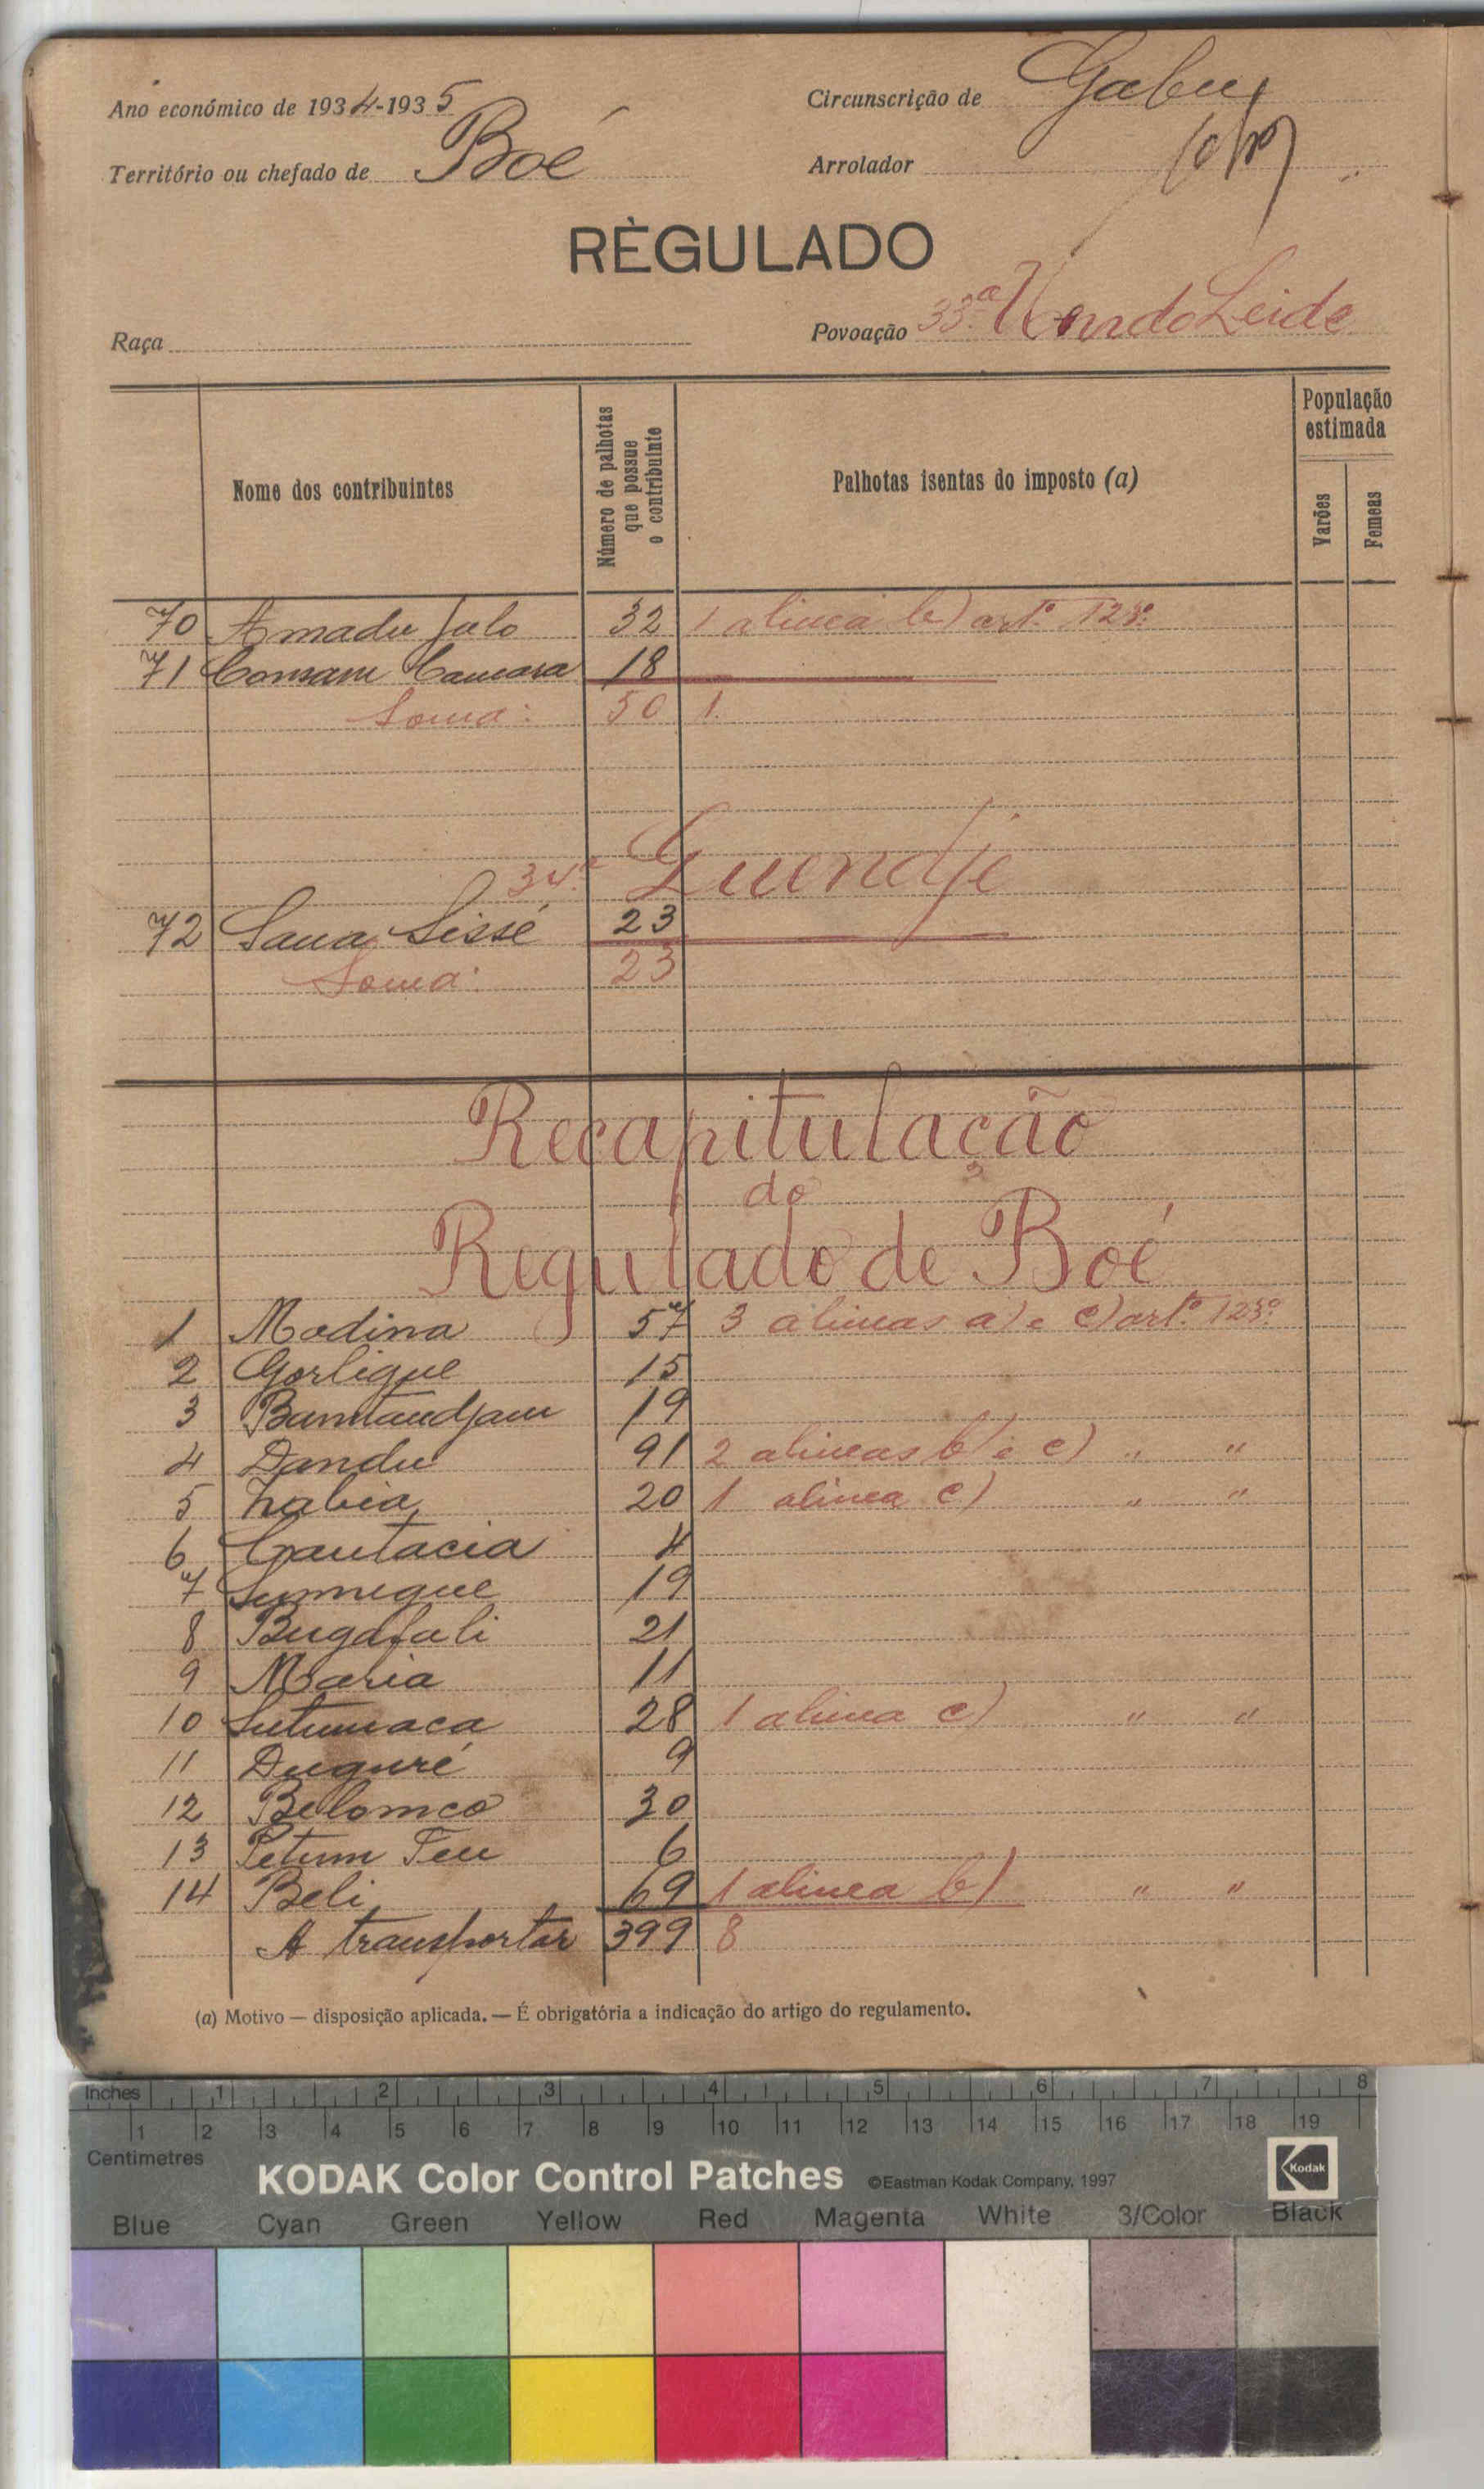 Ano económico de 1934-1935
Circunscrição de Gabu
Território ou chefado de Boé
Arrolador
RÈGULADO
Raça
Povoação 33ª Leide
Nome dos contribuintes
Número de palhotas que possue o contribuinte
Palhotas isentas do imposto (a)
População estimada
Varões
Femeas
70 Amadu Jalo 32 1 alinea b) artº 123º
71 Camara 18
Soma: 50 1.
34ª Guendje
72 Sana Sissé 23
Soma: 23
Recapitulação
do
Regulado de Boé
1 Madina 57 3 alineas a) e c) artº 123º
2 Gorligue 15
3 Bantandjam 19
4 Dandu 91 2 alineas b) e c) " "
5 Labia 20 1 alinea c) " "
6 Cantacia 4
7 19
8 Bugafali 21
9 Maria 11
10 Sutumaca 28 1 alinea c) " "
11 Duguré 9
12 Belomco 30
13 Petum Teu 6
14 Beli 69 1 alinea b) " "
A transportar 399 8
(a) Motivo — disposição aplicada. — É obrigatória a indicação do artigo do regulamento.
Inches 1 2 3 4 5 6 7 8
1 2 3 4 5 6 7 8 9 10 11 12 13 14 15 16 17 18 19
Centimetres
KODAK Color Control Patches ©Eastman Kodak Company, 1997 Kodak
Blue Cyan Green Yellow Red Magenta White 3/Color Black